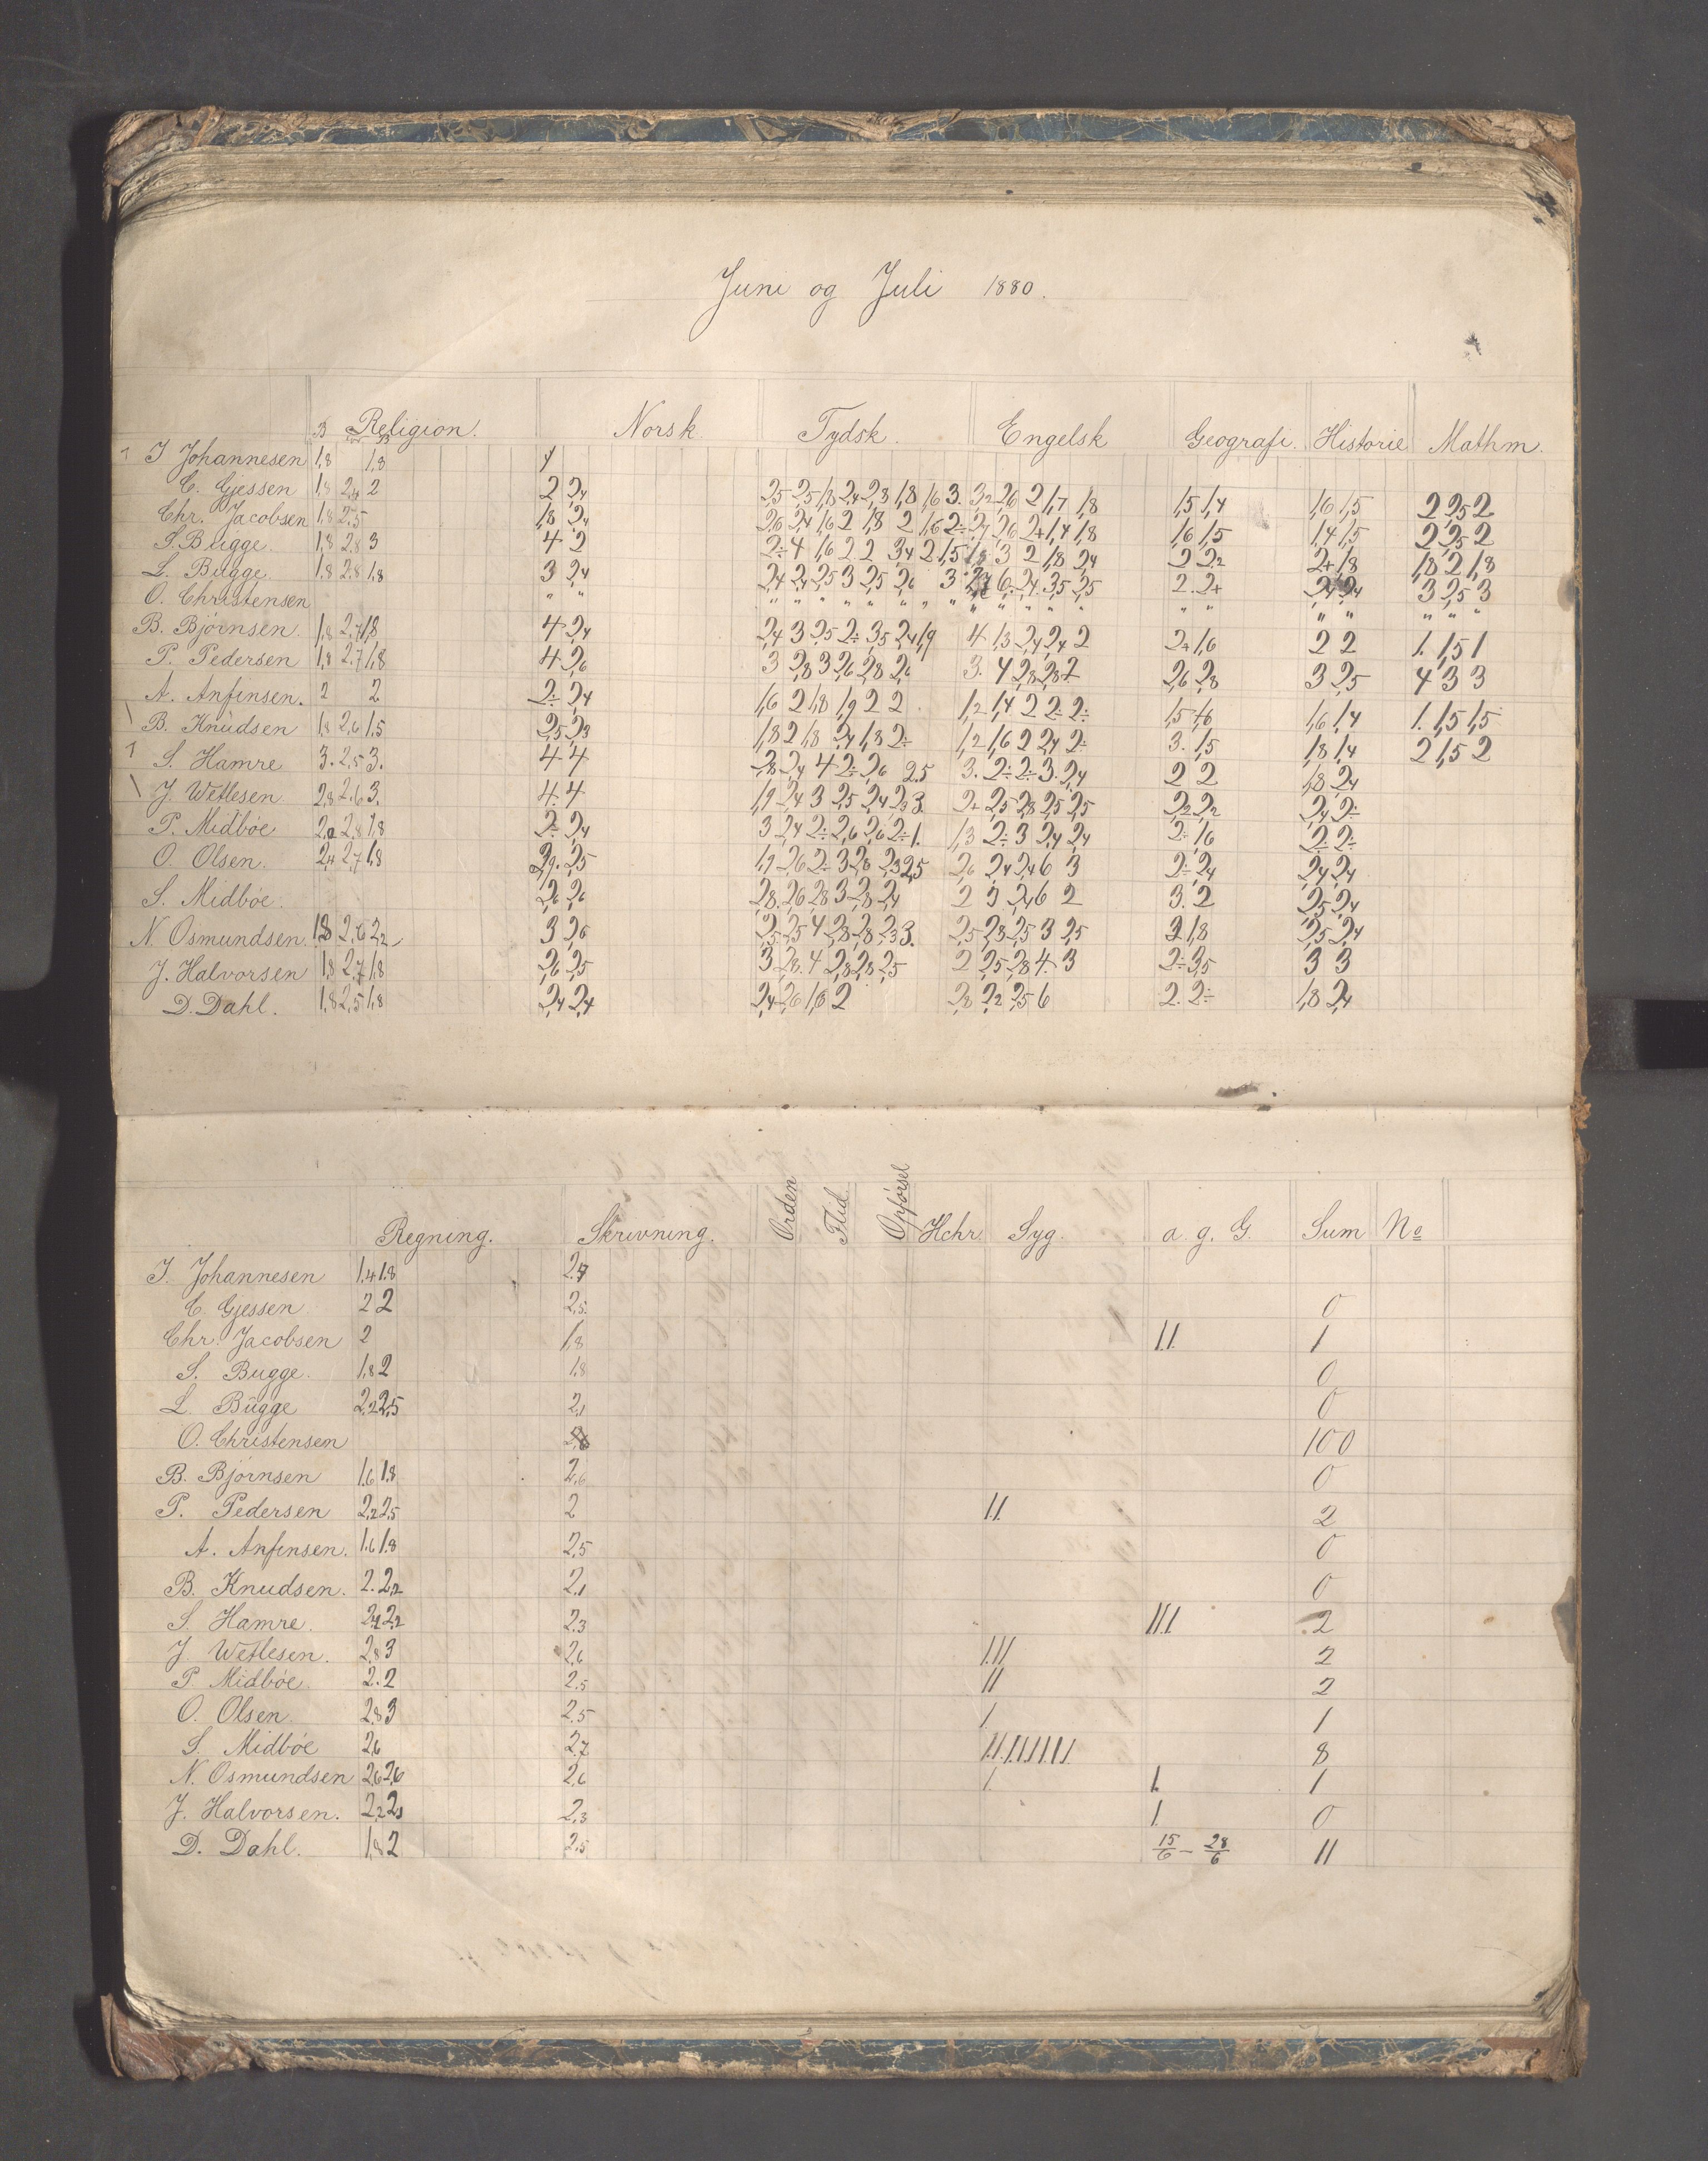 Juni og Juli 1880.
B Religion. Norsk. Tydsk. Engelsk Geografi. Historie Mathm.
J Johannesen 1,8 1,8
C. Gjessen 1,8 2,4 2 2 2,4 2,5 2,5 1,8 2,4 2,8 1,8 1,6 3. 3,2 2,6 2 1,7 1,8 1,5 1,4 1,6 1,5 2 2,5 2
Chr. Jacobsen 1,8 2,5 1,8 2,4 2,6 2,4 1,6 2 1,8 2 1,6 2÷ 2,7 2,6 2+ 1,4 1,8 1,6 1,5 1,4 1,5 2 2,5 2
S. Bugge. 1,8 2,8 3 4 2 2÷ 4 1,6 2 2 3,4 2 1,5 1,8 3 2 1,8 2,4 2 2,2 2+ 1,8 1,8 2 1,8
L. Bugge. 1,8 2,8 1,8 3 2,4 2,4 2,4 2,5 3 2,5 2,6 3 6 2,4 3,5 2,5 2. 2+ 3 2,5 3
O. Christensen " " " " " " " " " " " " " " " " " " " " "
B. Bjørnsen. 1,8 2,7 1,8 4 2,4 2,4 3 2,5 2÷ 3,5 2,4 1,9 4 1,3 2,4 2,4 2 2+ 1,6 2 2 1. 1,5 1
P. Pedersen 1,8 2.7 1,8 4 2,6 3 2,8 3 2,6 2,8 2,6 3. 4 2,8 2,8 2 2,6 2,8 3 2,5 4 3 3
A. Anfinsen. 2 2 2÷ 2,4 1,6 2 1,8 1,9 2 2 1,2 1,4 2 2÷ 2÷ 1,5 1,6 1,6 1,4 1. 1,5 1,5
B. Knudsen 1,8 2,6 1,5 2,5 2,3 1,8 2 1,8 2,4 1,8 2÷ 1,2 1,6 2 2,4 2÷ 3. 1,5 1,8 1,4 2 1,5 2
S. Hamre 3. 2,5 3. 4 4 2,8 2,4 4 2÷ 2,6 2.5 3. 2÷ 2÷ 3. 2,4 2 2 1,8 2,4
J. Wetlesen 2,8 2.6 3. 4. 4 1,9 2,4 3 2,5 2,4 2,3 3. 2+ 2,5 2,8 2,5 2,5 2,2 2,2 2,4 2÷
P. Midbøe 2,2 2,8 1,8 2÷ 2,4 3 2,4 2÷ 2,6 2,6 2÷ 1. 1,3 2÷ 3 2,4 2,4 2÷ 1,6 2÷ 2÷
O. Olsen. 2,4 2,7 1,8 2,9. 2,5 1,9 2,6 2÷ 3 2,8 2,3 2,5 2,6 2,4 2,4 6 3 2÷ 2,4 2,4 2,4
S. Midbøe. 2,6 2,6 2,8. 2,6 2,8 3 2,8 2,4 2 3 2,4 6 2 3. 2 2,5 2,4
N. Osmundsen. 1,8 2,6 2,2 3 2,6 2,5 2,5 4 2,8 2,8 2,3 3. 2,5 2,3 2,5 3 2,5 2 1,8 2,5 2,4
J. Halvorsen 1,8 2,7 1,8 2,6 2,5 3 2,8. 4 2,8 2,8 2,5 2 2,5 2,8 4. 3 2÷ 3,5 3 3
D. Dahl. 1,8 2,5 1,8 2,4 2,4 2,4 2,6 1,6 2 2,8 2,2 2,5 6 2. 2÷ 1,8 2,4
Regning. Skrivning. Orden Flid Opførsel Hchr Syg. a. g. G. Sum No
J. Johannesen 1.4 1.8 2.7
C. Gjessen 2 2 2,5. 0
Chr. Jacobsen 2 1,8 11. 1
S. Bugge. 1,8 2 1,8 0
L. Bugge 2,2 2,5 2,1 0
O. Christensen 100
B. Bjørnsen 1,6 1,8 2,6 0
P. Pedersen 2,2 2,5 2 11. 2
A. Anfinsen. 1.6 1.8 2,5 0
B. Knudsen. 2. 2,2 2,1 0
S. Hamre. 2,2 2,2 2.3 111 2
J. Wetlesen. 2,8 3 2,6 111 2
P. Midbøe. 2.2 2.5 11 2
O. Olsen. 2,8 3 2.5 1 1
S. Midbøe 2,6 2.7 11.1111.11 8
N. Osmundsen 2,6 2,6 2,6 1. 1. 1
J. Halvorsen. 2,2 2,1 2,3 1. 0
D. Dahl. 1,8 2 2.5 15/6 – 28/6 11